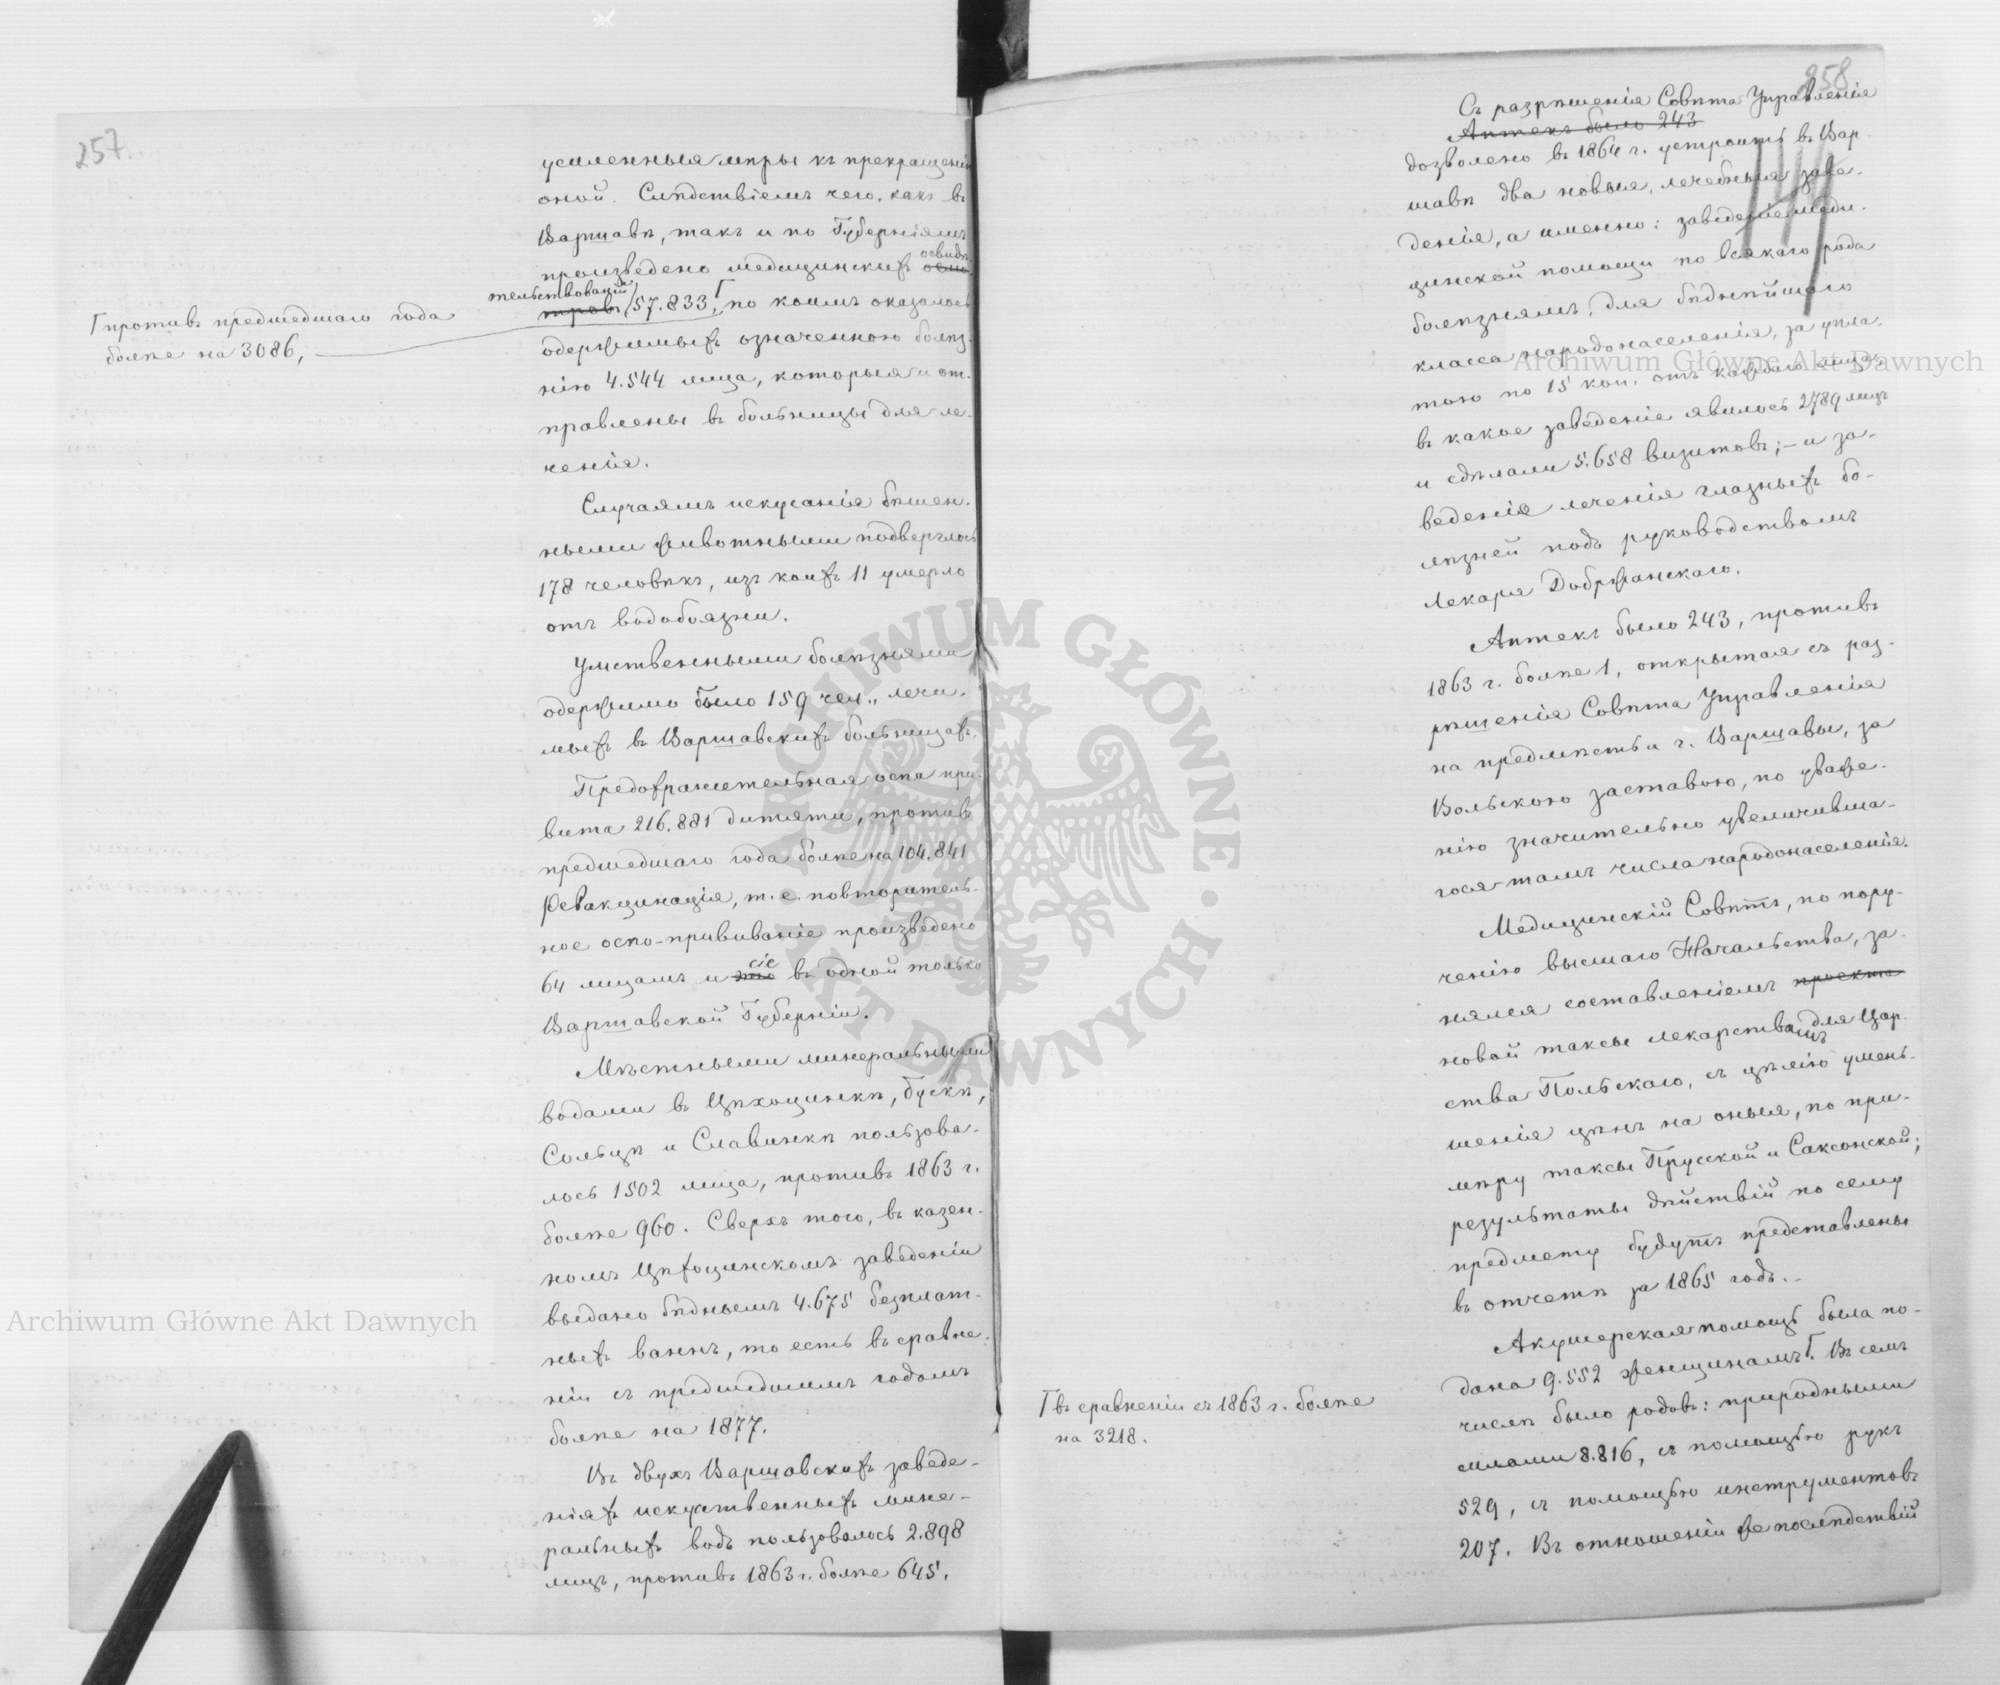 257.
усиленныя мѣры къ прекращенію
оной. Слѣдствіемъ чего, какъ въ
Варшавѣ, такъ и по Губерніямъ
произведено медицинскихъ осмо-
освидѣ-
тельствованій
тровъ 57.833, по коимъ оказалось
Противъ предшедшаго года
болѣе на 3086,
одержимыхъ означенною болѣз-
нію 4.544 лица, которыя и от-
правлены въ больницы для ле-
ченія.
Случаямъ искусанія бѣшен-
ными животными подверглось
178 человѣкъ, изъ коихъ 11 умерло
отъ водобоязни.
Умственными болѣзнями
одержимо было 159 чел., лечи-
мыхъ въ Варшавскихъ больницахъ.
Предохранительная оспа при-
вита 216.881 дитяти, противъ
предшедшаго года болѣе на 104.841
Ревакцинація, т. е. повторитель-
ное оспо-прививаніе произведено
64 лицамъ и это сіе въ одной только
Варшавской Губерніи.
Мѣстными минеральными
водами въ Цѣхоцинкѣ, Бускѣ,
Сольцѣ и Славинкѣ пользова-
лось 1502 лица, противъ 1863 г.
болѣе 960. Сверхъ того, въ казен-
номъ Цѣхоцинскомъ заведеніи
выдано бѣднымъ 4.675 безплат-
ныхъ ваннъ, то есть въ сравне-
ніи съ предшедшимъ годомъ
болѣе на 1877.
Въ двухъ Варшавскихъ заведе-
ніяхъ искуственныхъ мине-
ральныхъ водъ пользовалось 2.898
лицъ, противъ 1863 г. болѣе 645.
258
Съ разрѣшенія Совѣта Управленія
Аптекъ было 243
дозволено въ 1864 г. устроить въ Вар-
шавѣ два новыя, лечебныя заве-
денія, а именно: заведеніе меди-
цинской помощи по всякаго рода
болѣзнямъ, для бѣднѣйшаго
класса народонаселенія, за упла-
тою по 15 коп. отъ каждаго лица,
въ какое заведеніе явилось 2789 лицъ
и сдѣлали 5.658 визитовъ; – и за-
веденія леченія глазныхъ бо-
лѣзней подъ руководствомъ
Лекаря Добржанскаго.
Аптекъ было 243, противъ
1863 г. болѣе 1, открытая съ раз-
рѣшенія Совѣта Управленія
на предмѣстьи г. Варшавы, за
Вольскою заставою, по уваже-
нію значительно увеличивша-
гося тамъ числа народонаселенія.
Медицинскій Совѣтъ, по пору-
ченію высшаго Начальства, за-
нялся составленіемъ проекта
новой таксы лекарствамъ для Цар-
ства Польскаго, съ цѣлію умень-
шенія цѣнъ на оныя, по при-
мѣру таксы Прусской и Саксонской;
результаты дѣйствій по сему
предмету будутъ представлены
въ отчетѣ за 1865 годъ. –
Акушерская помощь была по-
дана 9.552 женщинамъ. Въ семъ
Въ сравненіи съ 1863 г. болѣе
на 3218.
числѣ было родовъ: природными
силами 8.816, съ помощью рукъ
529, съ помощью инструментовъ
207. Въ отношеніи же послѣдствій
Archiwum Główne Akt Dawnych
Archiwum Główne Akt Dawnych
ARCHIWUM GŁÓWNE · AKT DAWNYCH ·